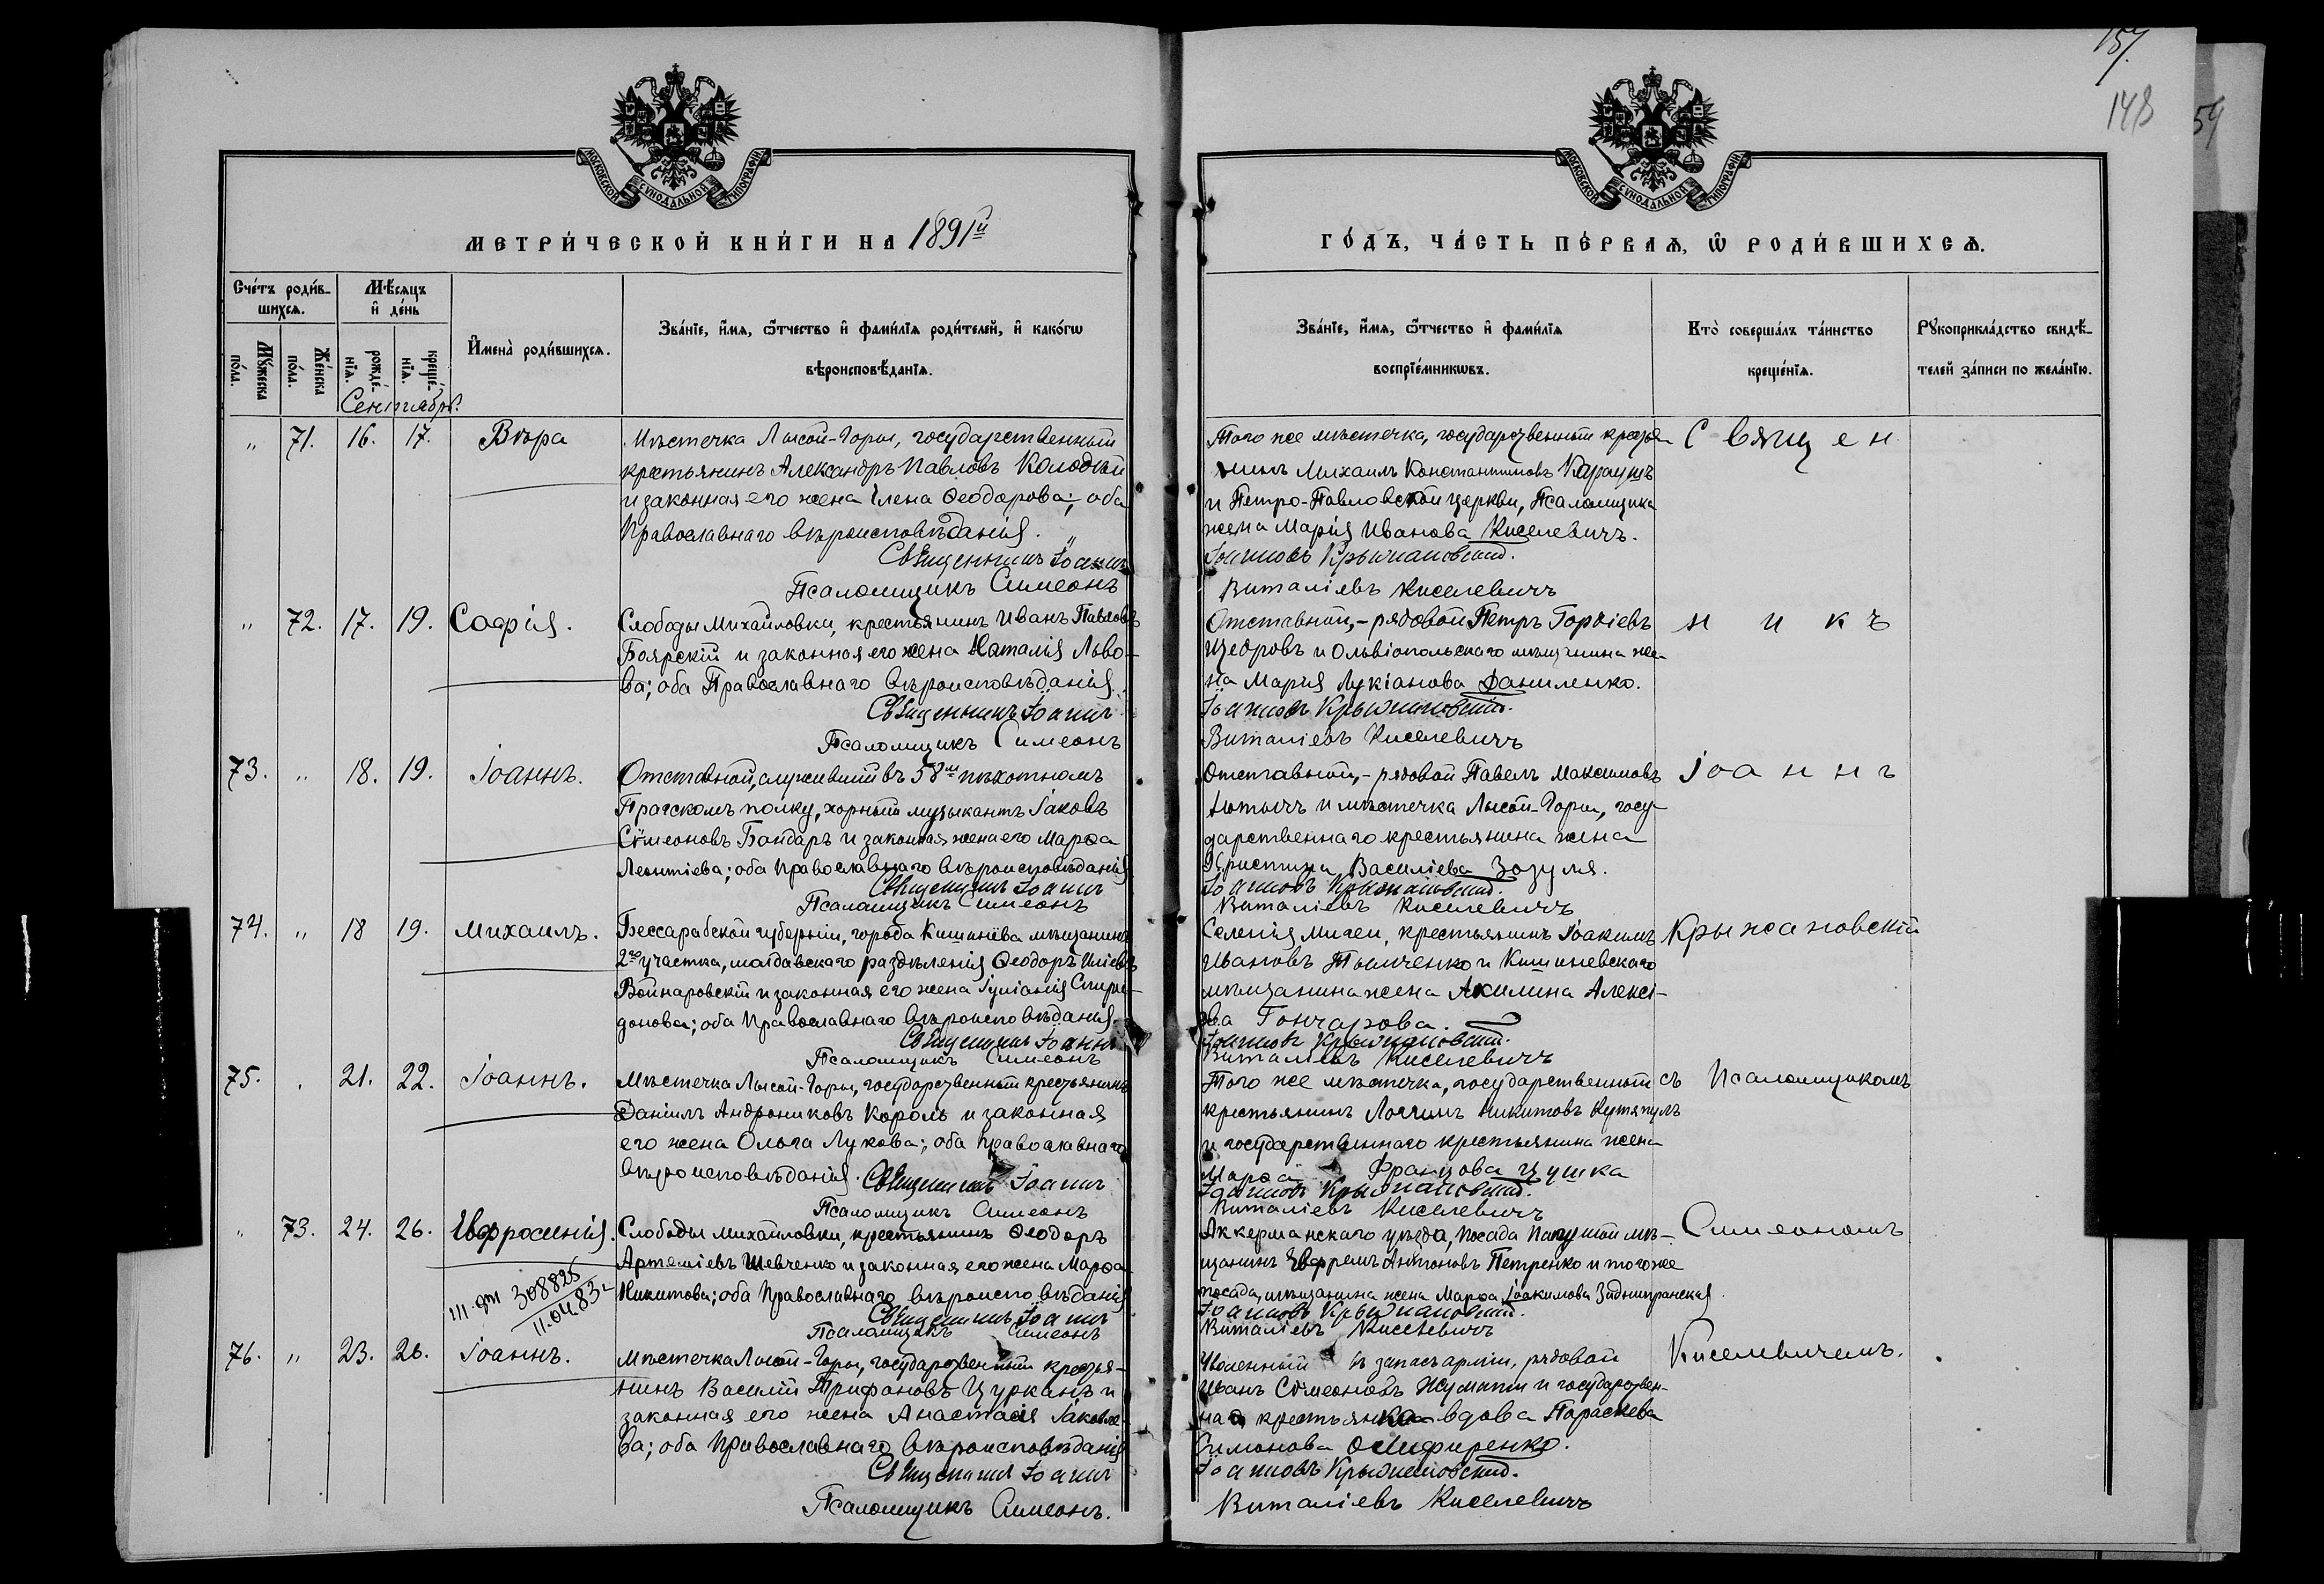 157.
148
59
МОСКОВСКОЙ СѴНОДАЛЬНОЙ ТИПОГРАФІИ
МОСКОВСКОЙ СѴНОДАЛЬНОЙ ТИПОГРАФІИ
МЕТРИ́ЧЕСКОЙ КНИ́ГИ НА 1891й
ГО́ДЪ, ЧА́СТЬ ПЕ́РВАѦ, Ѿ РОДИ́ВШИХСѦ.
Сче́тъ роди́в-
шихсѧ.
Мꙋ́жеска по́ла.
Же́нска по́ла.
Мѣ́сѧцъ
и҆ де́нь
рожде́-нїѧ.
креще́-нїѧ.
Сентябрь.
И҆мена̀ роди́вшихсѧ.
Зва́нїе, и҆́мѧ, ѻ҆́тчество и҆ фами́лїѧ роди́телей, и҆ како́гѡ
вѣроисповѣ́данїѧ.
Зва́нїе, и҆́мѧ, ѻ҆́тчество и҆ фами́лїѧ
воспрїе́мникѡвъ.
Кто̀ соверша́лъ та́инство
креще́нїѧ.
Рꙋкоприкла́дство свидѣ́-
телей за́писи по жела́нїю.
" 71. 16. 17. Вѣра
Мѣстечка Лысой-Горы, государственный
крестьянинъ Александръ Павловъ Колодѣй
и законная его жена Елена Ѳеодорова; оба
Православнаго вѣроисповѣданія.
Священникъ Іоаннъ
Псаломщикъ Симеонъ
Того же мѣстечка, государственный крестья-
нинъ Михаилъ Константиновъ Караушъ
и Петро-Павловской церкви, Псаломщика
жена Марія Иванова Киселевичъ.
Іоанновъ Крыжановский.
Виталіевъ Киселевичъ
Священ
" 72. 17. 19. Софія.
Слободы Михайловки, крестьянинъ Иванъ Павловъ
Боярскій и законная его жена Наталія Льво-
ва; оба Православнаго вѣроисповѣданія.
Священникъ Іоаннъ
Псаломщикъ Симеонъ
Отставной,- рядовой Петръ Гордіевъ
Щедровъ и Ольвіопольскаго мѣщанина же-
на Марія Лукіанова Даниленко.
Іоанновъ Крыжановский.
Виталіевъ Киселевичъ
никъ
73. " 18. 19. Іоаннъ.
Отставной, служившій въ 58мъ пѣхотномъ
Прагскомъ полку, хорный музыкантъ Іаковъ
Сѵмеоновъ Бондаръ и законная жена его Марѳа
Леонтіева; оба Православнаго вѣроисповѣданія
Священникъ Іоаннъ
Псаломщикъ Симеонъ
Отставной,- рядовой Павелъ Максимовъ
Лютычъ и мѣстечка Лысой-Горы, госу-
дарственнаго крестьянина жена
Христина Василіева Зозуля.
Іоанновъ Крыжановский.
Виталіевъ Киселевичъ
Іоаннъ
74. " 18 19. Михаилъ.
Бессарабской губерніи, города Кишинева мѣщанинъ
2го участка, молдавскаго раздѣленія Ѳеодоръ Иліевъ
Войнаровскій и законная его жена Іуліанія Спири-
донова; оба Православнаго вѣроисповѣданія.
Священникъ Іоаннъ
Псаломщикъ Симеонъ
Селенія Мигеи, крестьянинъ Іоакимъ
Ивановъ Тымченко и Кишиневскаго
мѣщанина жена Акилина Алексі-
ева Гончарова.
Іоанновъ Крыжановский.
Виталіевъ Киселевичъ
Крыжановскій
75. . 21. 22. Іоаннъ.
Мѣстечка Лысой-Горы, государственный крестьянинъ
Даніилъ Андрониковъ Король и законная
его жена Ольга Лукова; оба Православнаго
вѣроисповѣданія. Священникъ Іоаннъ
Псаломщикъ Симеонъ
Того же мѣстечка, государственный
крестьянинъ Логгинъ Никитовъ
и государственнаго крестьянина жена
Марѳа Францова Цушка
Іоанновъ Крыжановский.
Виталіевъ Киселевичъ
съ Псаломщикомъ
" 73. 24. 26. Евфросинія.
III-ЯТ 308825
11.04.83
Слободы Михайловки, крестьянинъ Ѳеодоръ
Артеміевъ Шевченко и законная его жена Марѳа
Никитова; оба Православнаго вѣроисповѣданія
Священникъ Іоаннъ
Псаломщикъ Симеонъ
Аккерманскаго уѣзда, посада Папушой мѣ-
щанинъ Ефремъ Антоновъ Петренко и того же
посада, мѣщанина жена Марѳа Іоакимова Заднипранская.
Іоанновъ Крыжановский.
Виталіевъ Киселевичъ
Симеономъ
76. " 23. 26. Іоаннъ.
Мѣстечка Лысой-Горы, государственный крестья-
нинъ Василій Трифановъ Цурканъ и
законная его жена Анастасія Іаковле-
ва; оба Православнаго вѣроисповѣданія
Священникъ Іоаннъ
Псаломщикъ Симеонъ.
Уволенный въ запасъ арміи, рядовой
Иванъ Сѵмеоновъ Жуматій и государствен-
ная крестьянка вдова Параскева
Симонова Олифиренко.
Іоанновъ Крыжановский.
Виталіевъ Киселевичъ
Киселевичемъ.